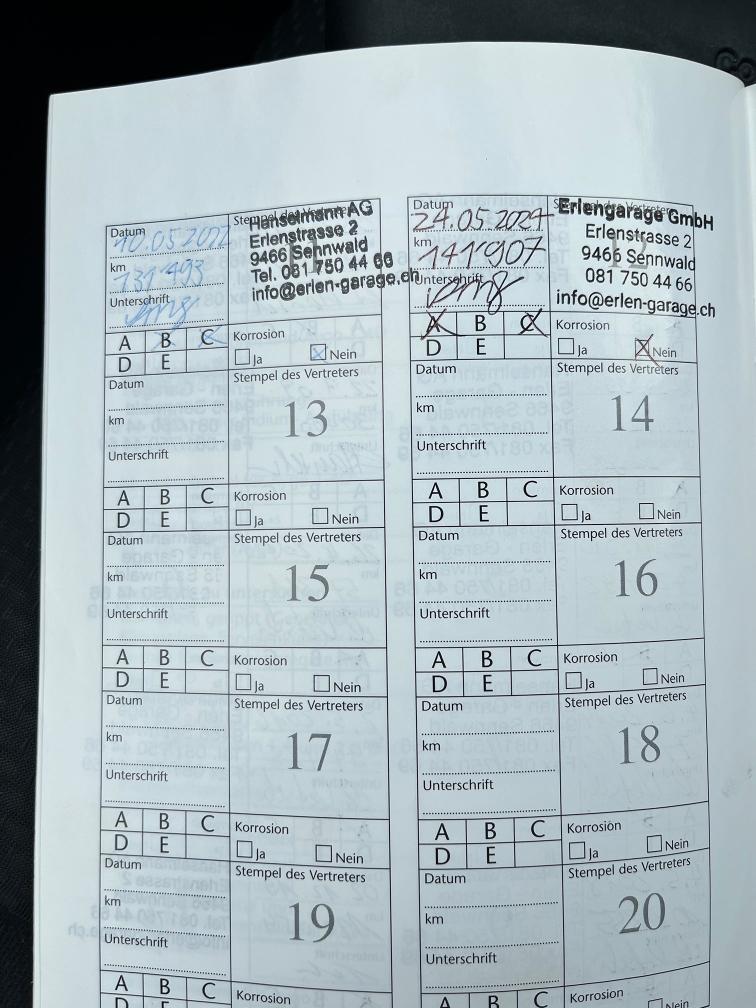 Datum
10.05.2022
km
131'493
Unterschrift
Stempel des Vertreters
Hanselmann AG
Erlenstrasse 2
9466 Sennwald
Tel. 081 750 44 66
info@erlen-garage.ch
A B C
D E
Korrosion
Ja Nein
Datum
24.05.2024
km
141'907
Unterschrift
Erlengarage GmbH
Erlenstrasse 2
9466 Sennwald
081 750 44 66
info@erlen-garage.ch
A B C
D E
Korrosion
Ja Nein
Datum
km
Unterschrift
Stempel des Vertreters
13
A B C
D E
Korrosion
Ja Nein
Datum
km
Unterschrift
Stempel des Vertreters
14
A B C
D E
Korrosion
Ja Nein
Datum
km
Unterschrift
Stempel des Vertreters
15
A B C
D E
Korrosion
Ja Nein
Datum
km
Unterschrift
Stempel des Vertreters
16
A B C
D E
Korrosion
Ja Nein
Datum
km
Unterschrift
Stempel des Vertreters
17
A B C
D E
Korrosion
Ja Nein
Datum
km
Unterschrift
Stempel des Vertreters
18
A B C
D E
Korrosion
Ja Nein
Datum
km
Unterschrift
Stempel des Vertreters
19
A B C
D E
Korrosion
Datum
km
Unterschrift
Stempel des Vertreters
20
A B C
Korrosion
Nein